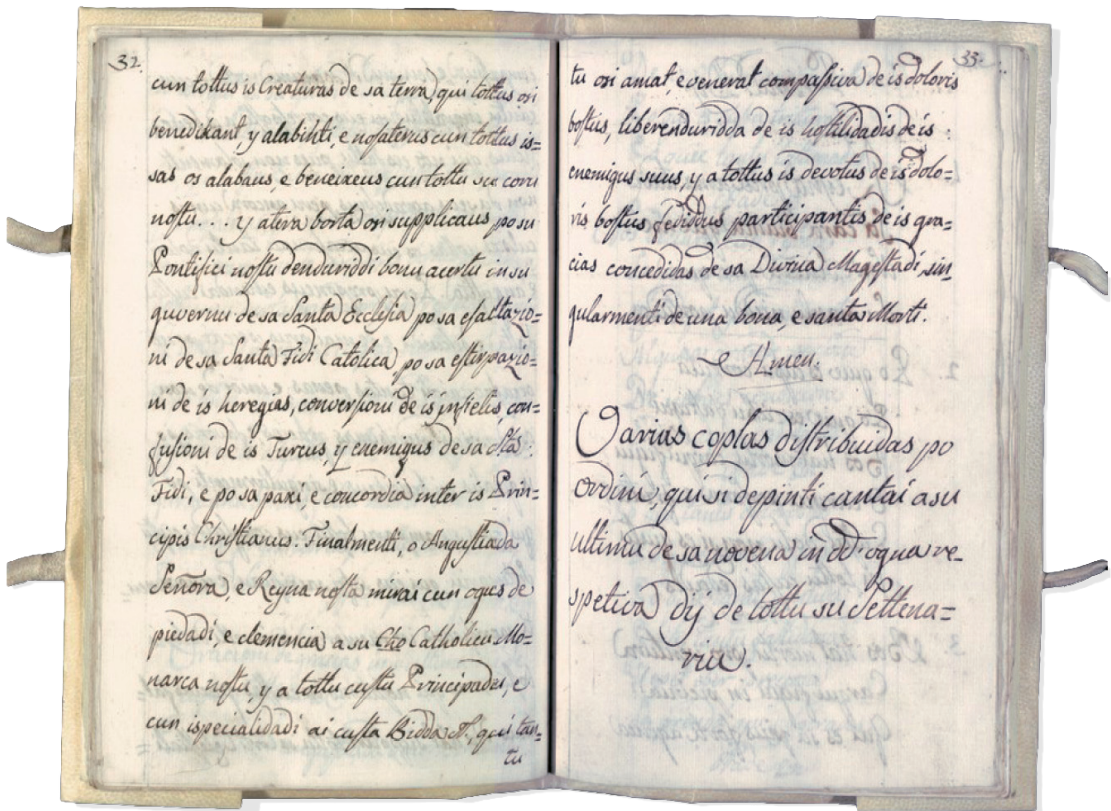 32.
cun tottus is Creaturas de sa terra, qui tottus osi
benedikant, y alabinti, e nosaterus cun tottus is=
sas os alabaus, e beneixeus cun tottu su coru
nostu.... y atera borta osi supplicaus po su
Pontifici nostu dendu riddi bonu acertu in su
guvernu de sa Santa Ecclesia, po sa esaltazio=
ni de sa Santa Fidi Catolica, po sa estirpazio=
ni de is heregias, conversioni de is infielis con=
fusioni de is Turcus, y enemigus de sa Sta.
Fidi, e po sa paxi, e concordia inter is Prin=
cipis Christianus. Finalmenti, o Angustiada
Señora, e Reyna nosta mirai cun ogus de
piedadi, e clemencia a su Cho Catholicu Mo=
narca nostu, y a tottu custu Principadu, e
cun ispecialidadi ai custa Bidda N., qui tan=
tu
33.
tu osi amat, e venerat compassiva de is doloris
bostus, liberenduridda de is hostilidadis de is
enemigus suus, y a tottus is devotus de is dolo=
ris bostus participantis de is gra=
cias concedidas de sa Divina Magestadi, sin
gularmenti de una bona, e santa Morti.
Amen.
Varias coplas distribuidas po
ordini, qui si depinti cantai a su
ultimu de sa novena in dd. ogna re=
spetiva dij de tottu su Settena=
riu.